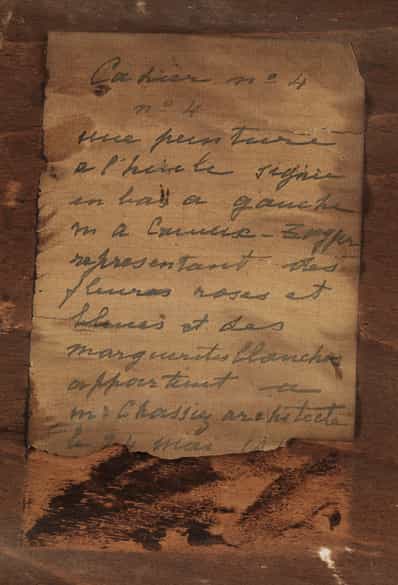 Cahier nº 4
nº 4
une peinture
a l'huile signée
en bas a gauche
m a
représentant des
fleures roses et
bleues et des
marguerites blanches
appartient a
mr Chassig architecte
le 24 mai